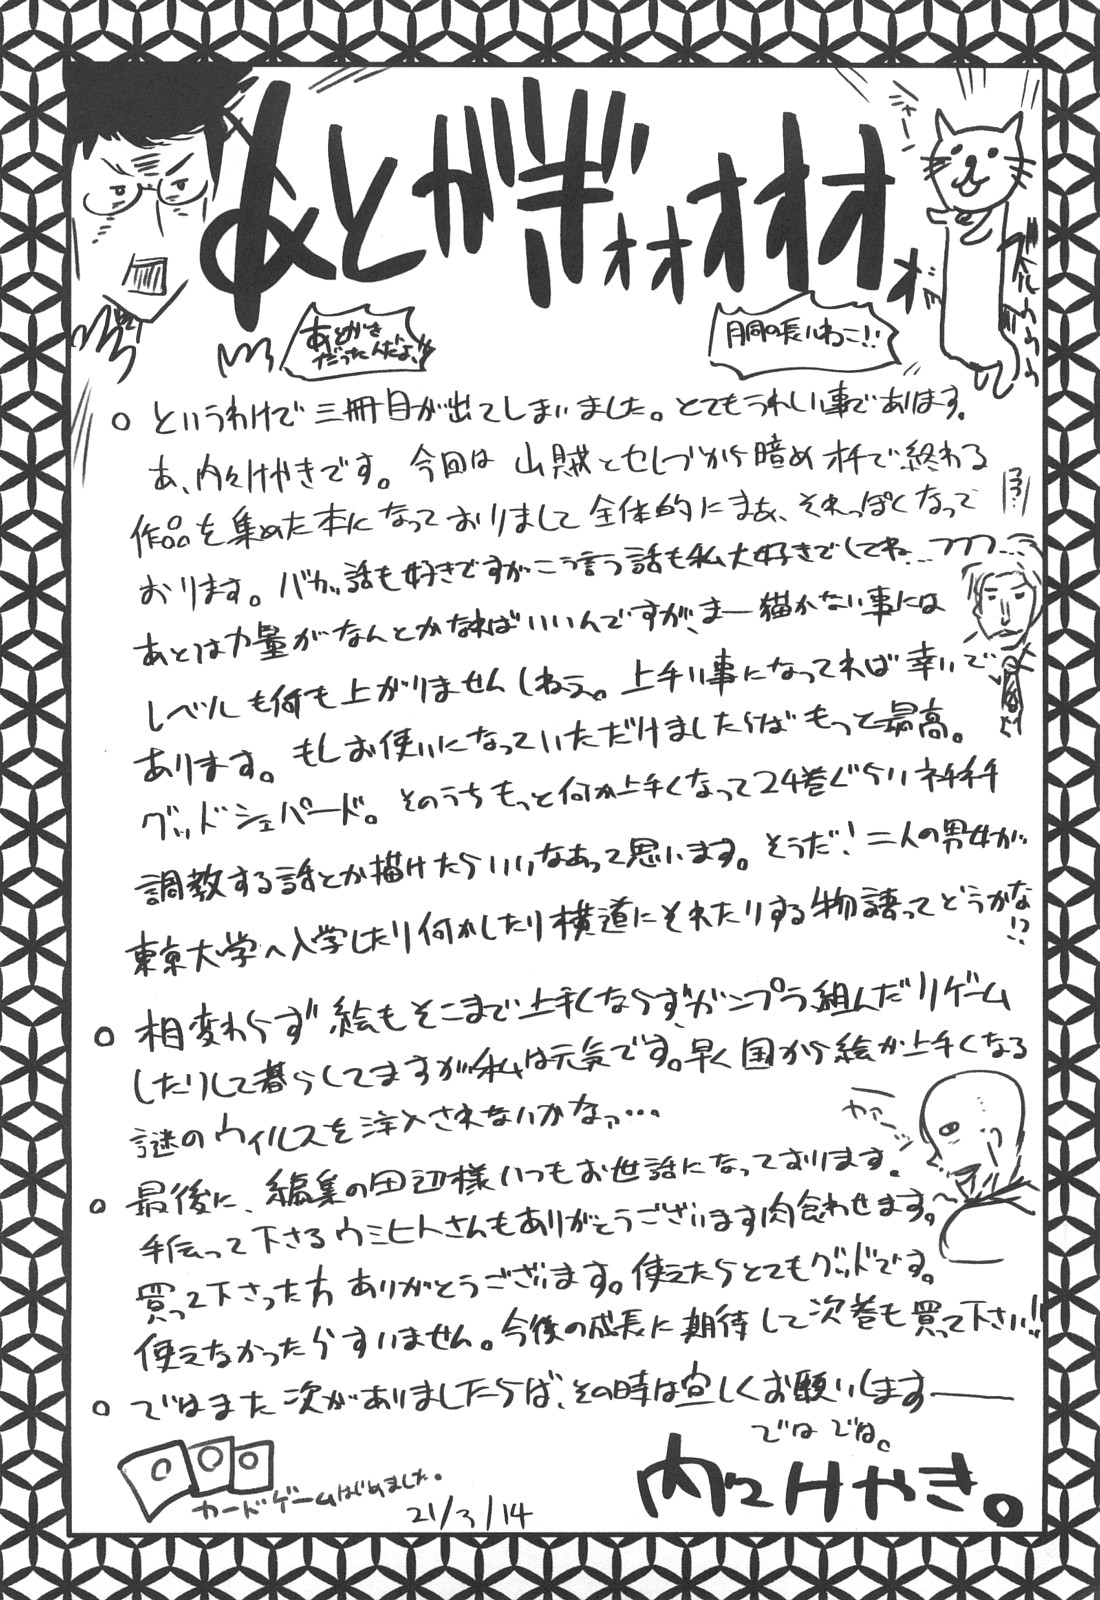 あとがぎォォオオオォ
ォォ
あとがき
だったんだよ!!
胴の長いねこ!!
というわけで三冊目が出てしまいました。とてもうれしい事であります。
あ、内々けやきです。今回は 山賊とセレブから暗めオチで終わる
作品を集めた本になっておりまして全体的にまぁ、それっぽくなって
おります。バカ話も好きですがこう言う話も私大好きでしてね…フフフ…
あとは力量がなんとかなればいいんですが、まー描かない事には
レベルも何も上がりませんしねぇ。上手い事になってれば幸いで
あります。もしお使いになっていただけましたらばもっと最高。
グッドシェパード。そのうちもっと何か上手くなって24巻ぐらいネチネチ
調教する話とか描けたらいいなあって思います。そうだ!二人の男女が
東京大学へ入学したり何かしたり横道にそれたりする物語ってどうかな!?
相変わらず絵もそこまで上手くならず、ガンプラ組んだりゲーム
したりして暮らしてますが私は元気です。早く国から絵が上手くなる
謎のウィルスを注入されないかなっ…
最後に、編集の田辺様いつもお世話になっております。
手伝って下さるウミヒトさんもありがとうございます肉食わせます。
買って下さった方ありがとうございます。使えたらとてもグッドです。
使えなかったらすいません。今後の成長に期待して次巻も買って下さい!!
ではまた次がありましたらば、その時は宜しくお願いします――
ではでは。
内々けやき。
カードゲームはじめました。
21/3/14